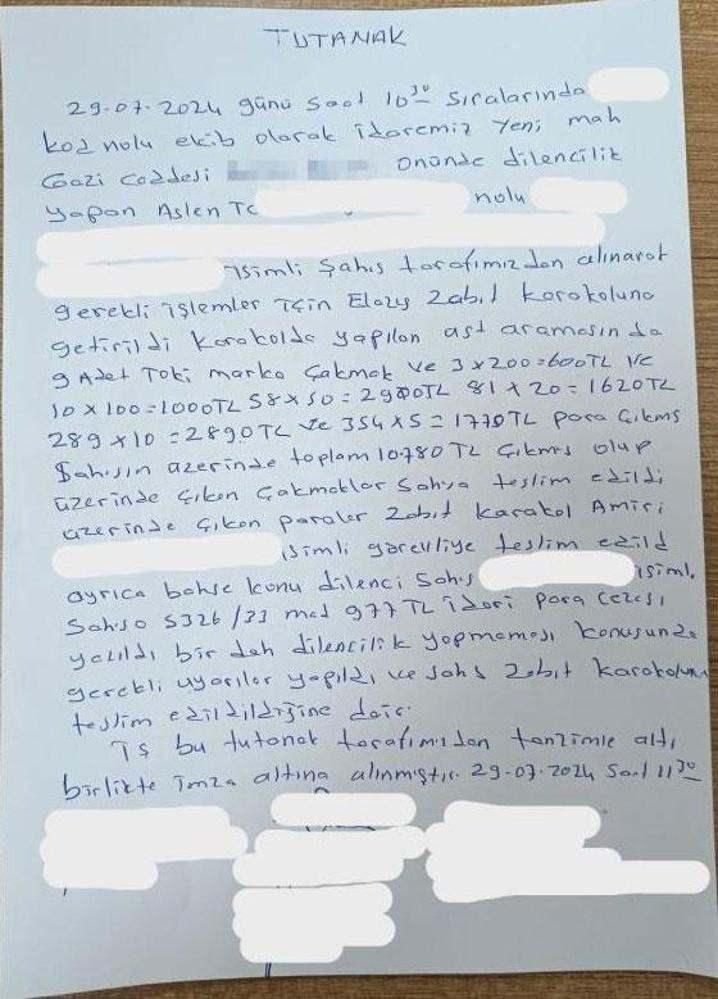 TUTANAK
29-07-2024 günü saat 10³⁰ sıralarında
kod nolu ekib olarak idaremiz Yeni mah
Gazi caddesi önünde dilencilik
yapan Aslen TC nolu
isimli şahıs tarafımızdan alınarak
gerekli işlemler için Elazığ Zabıt Karakoluna
getirildi Karakolda yapılan üst aramasında
9 Adet Toki marka Çakmak ve 3x200=600TL ve
10x100=1000TL 58x50=2900TL 81x20=1620TL
289x10=2890TL ve 354x5=1770TL para Çıkmış
Şahısın üzerinde toplam 10780 TL Çıkmış olup
üzerinde çıkan Çakmaklar Şahsa teslim edildi
üzerinde çıkan paralar Zabıt Karakol Amiri
isimli görevliye teslim edild
ayrıca bahse konu dilenci Şahıs isimli
Şahsa 5326/33 mad 977 TL idari para cezası
yazıldı bir dah dilencilik yapmaması konusunda
gerekli uyarılar yapıldı ve şahs Zabıt Karakoluna
teslim edildildiğine dair.
İş bu tutanak tarafımızdan tanzimle altı
birlikte imza altına alınmıştır. 29-07-2024 Saat 11³⁰